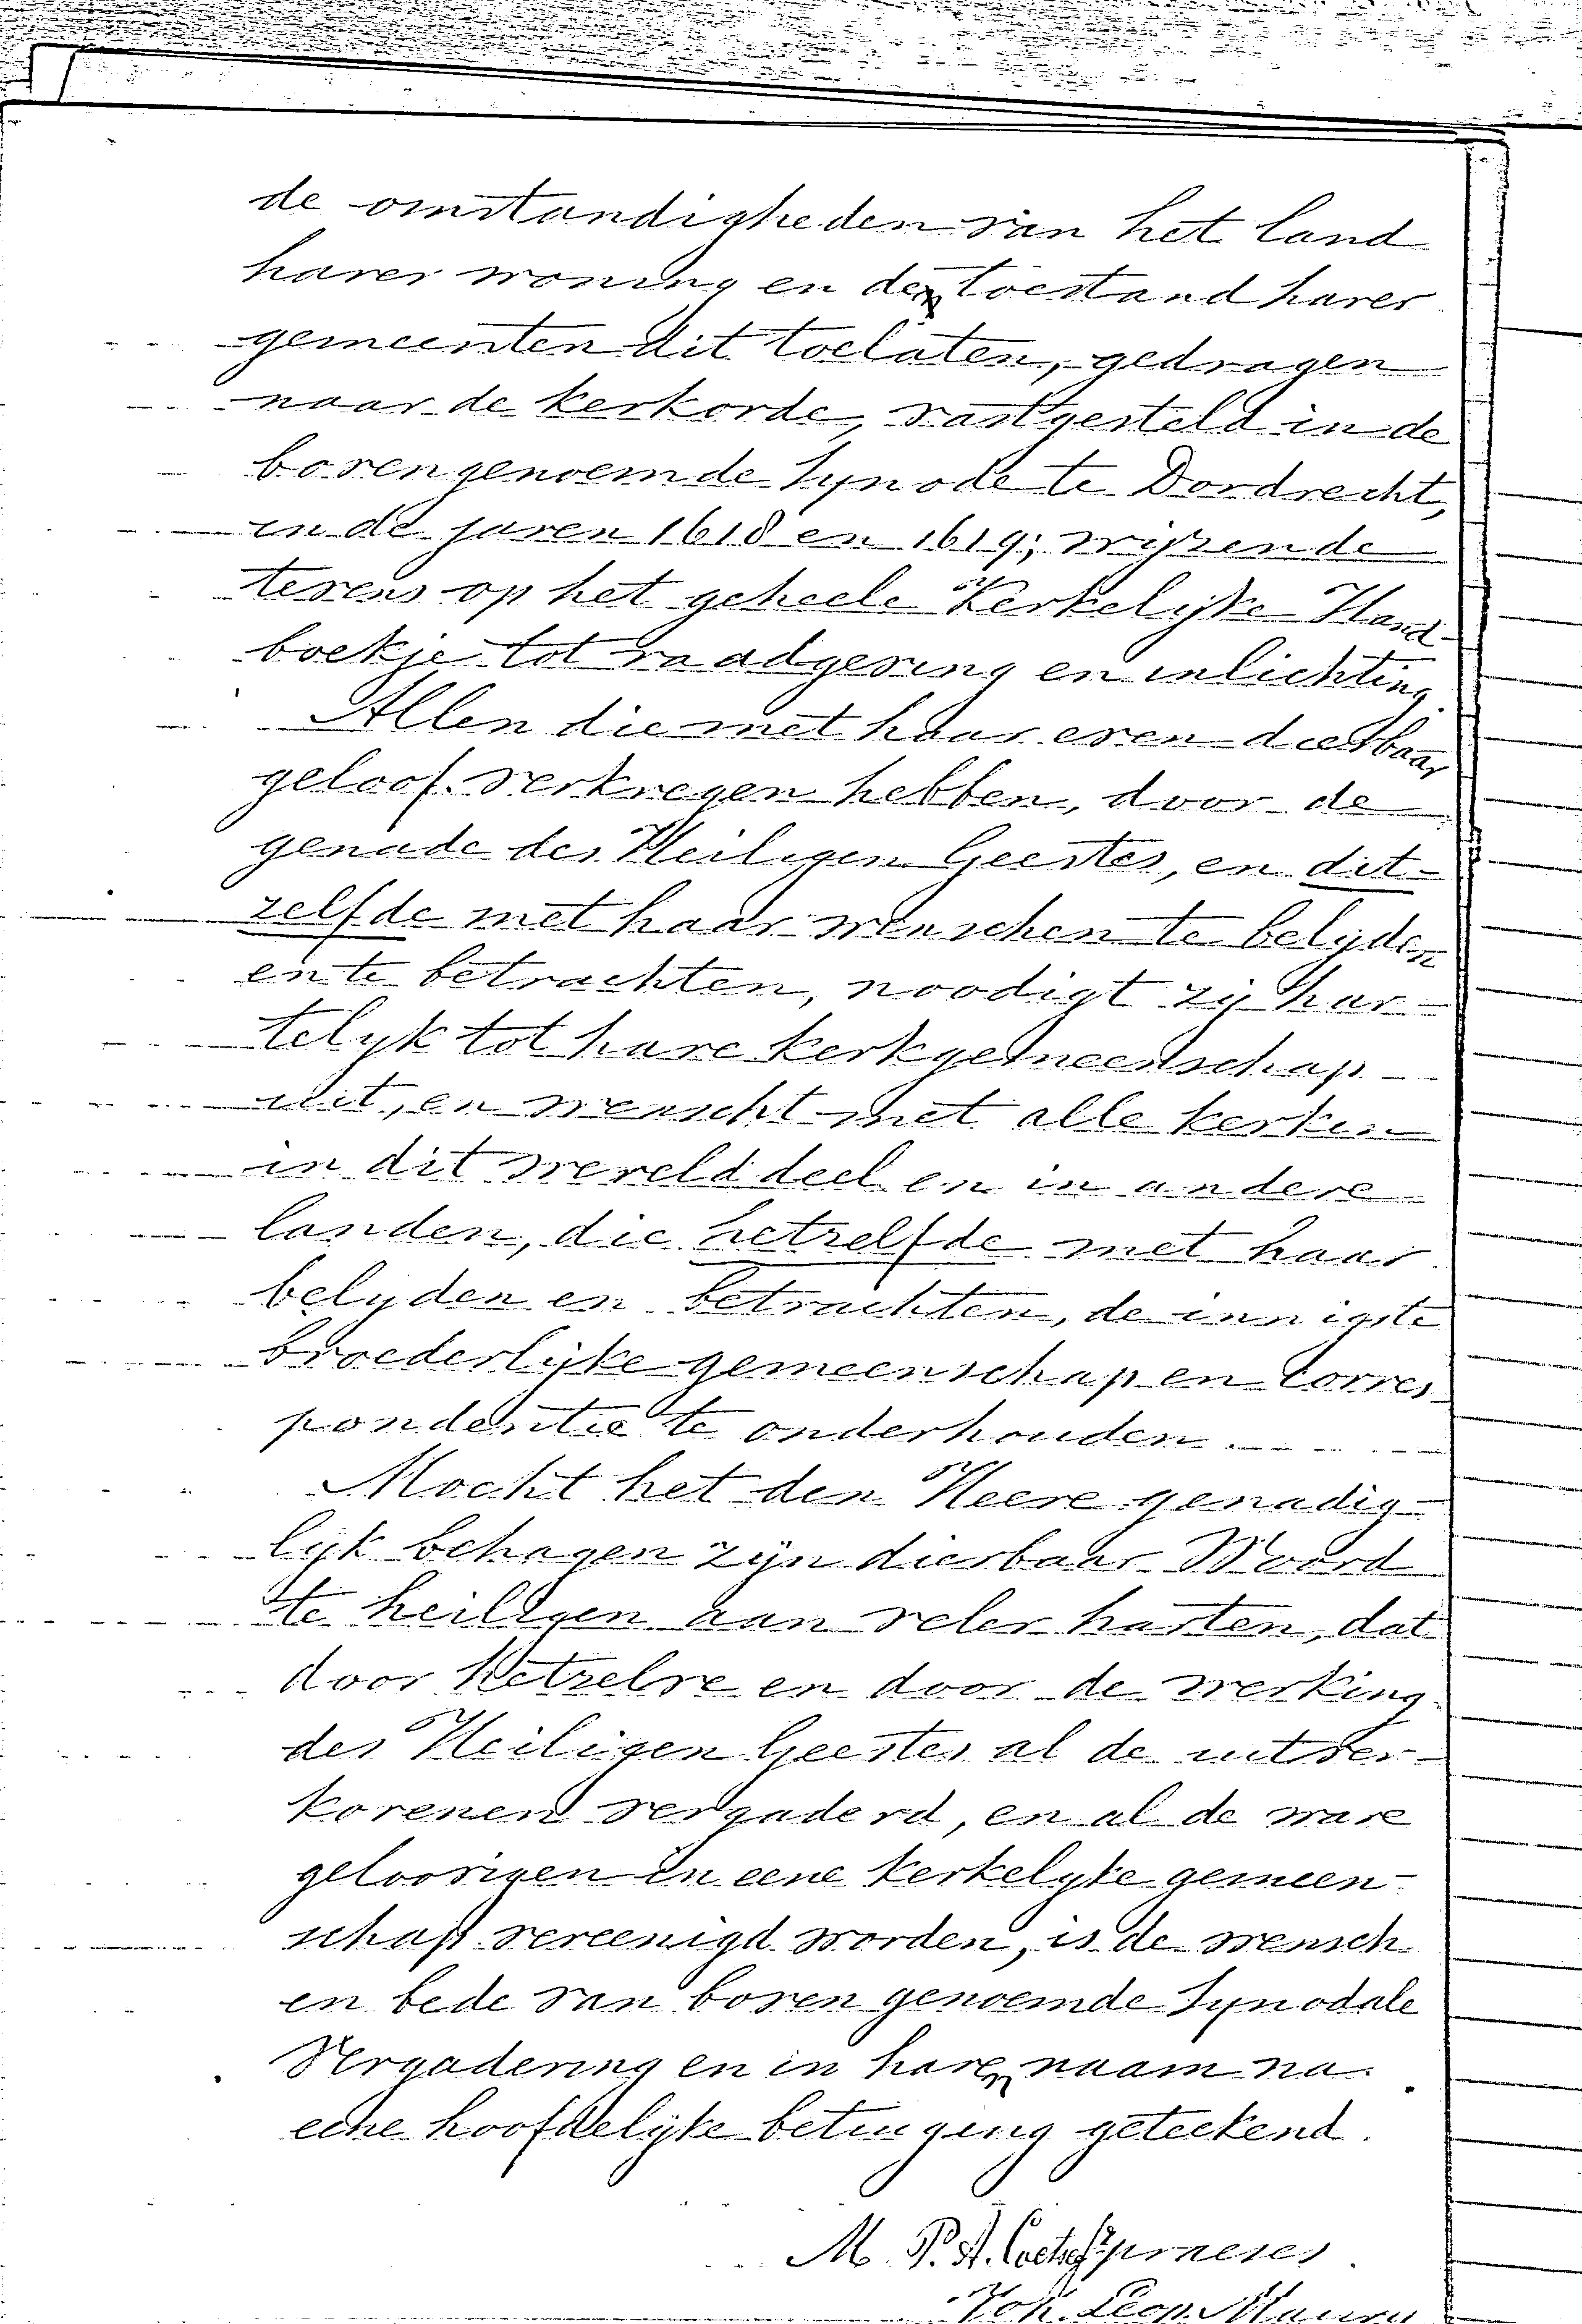 de omstandigheden van het land
harer woning en de toestand harer
gemeenten dit toelaten, gedragen
naar de kerkorde, vastgesteld in de
bovengenoemde Synode te Dordrecht,
in de jaren 1618 en 1619; wijzende
tevens op het geheele Kerkelijke Hand-
boekje tot raadgeving en inlichting.
Allen die met haar even dierbaar
geloof verkregen hebben, door de
genade des Heiligen Geestes, en dit-
zelfde met haar wenschen te belijden
en te betrachten, noodigt zij har-
telijk tot hare kerkgemeenschap
uit, en wenscht met alle kerken
in dit werelddeel en in andere
landen, die hetzelfde met haar
belijden en betrachten, de innigste
broederlijke gemeenschap en corres-
pondentie te onderhouden.
Mocht het den Heere genadig-
lijk behagen zijn dierbaar Woord
te heiligen aan veler harten, dat
door hetzelve en door de werking
des Heiligen Geestes al de uitver-
korenen vergaderd, en al de ware
geloovigen in eene kerkelijke gemeen-
schap vereenigd worden, is de wensch
en bede van boven genoemde Synodale
Vergadering en in hare naam na
eene hoofdelijke betuiging geteekend.
M. P. A. Coetsee
Joh. Leop. Maury